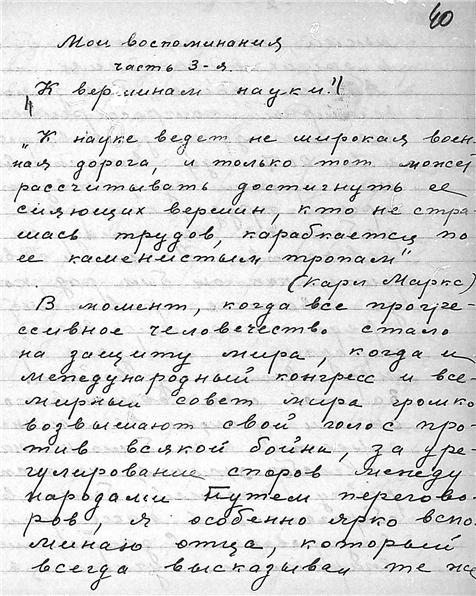 40
Мои воспоминания
часть 3-я.
"К вершинам науки!"
„К науке ведет не широкая воен-
ная дорога, и только тот может
рассчитывать достигнуть ее
сияющих вершин, кто не стра
шась трудов, карабкается по
ее каменистым тропам"
(Карл Маркс)
В момент, когда все прогре-
ссивное человечество стало
на защиту мира, когда и
международный конгресс и все-
мирный совет мира громко
возвышают свой голос про-
тив всякой войны, за уре-
гулирование споров между
народами путем перегово-
ров, я особенно ярко вспо
минаю отца, который
всегда высказывал те же